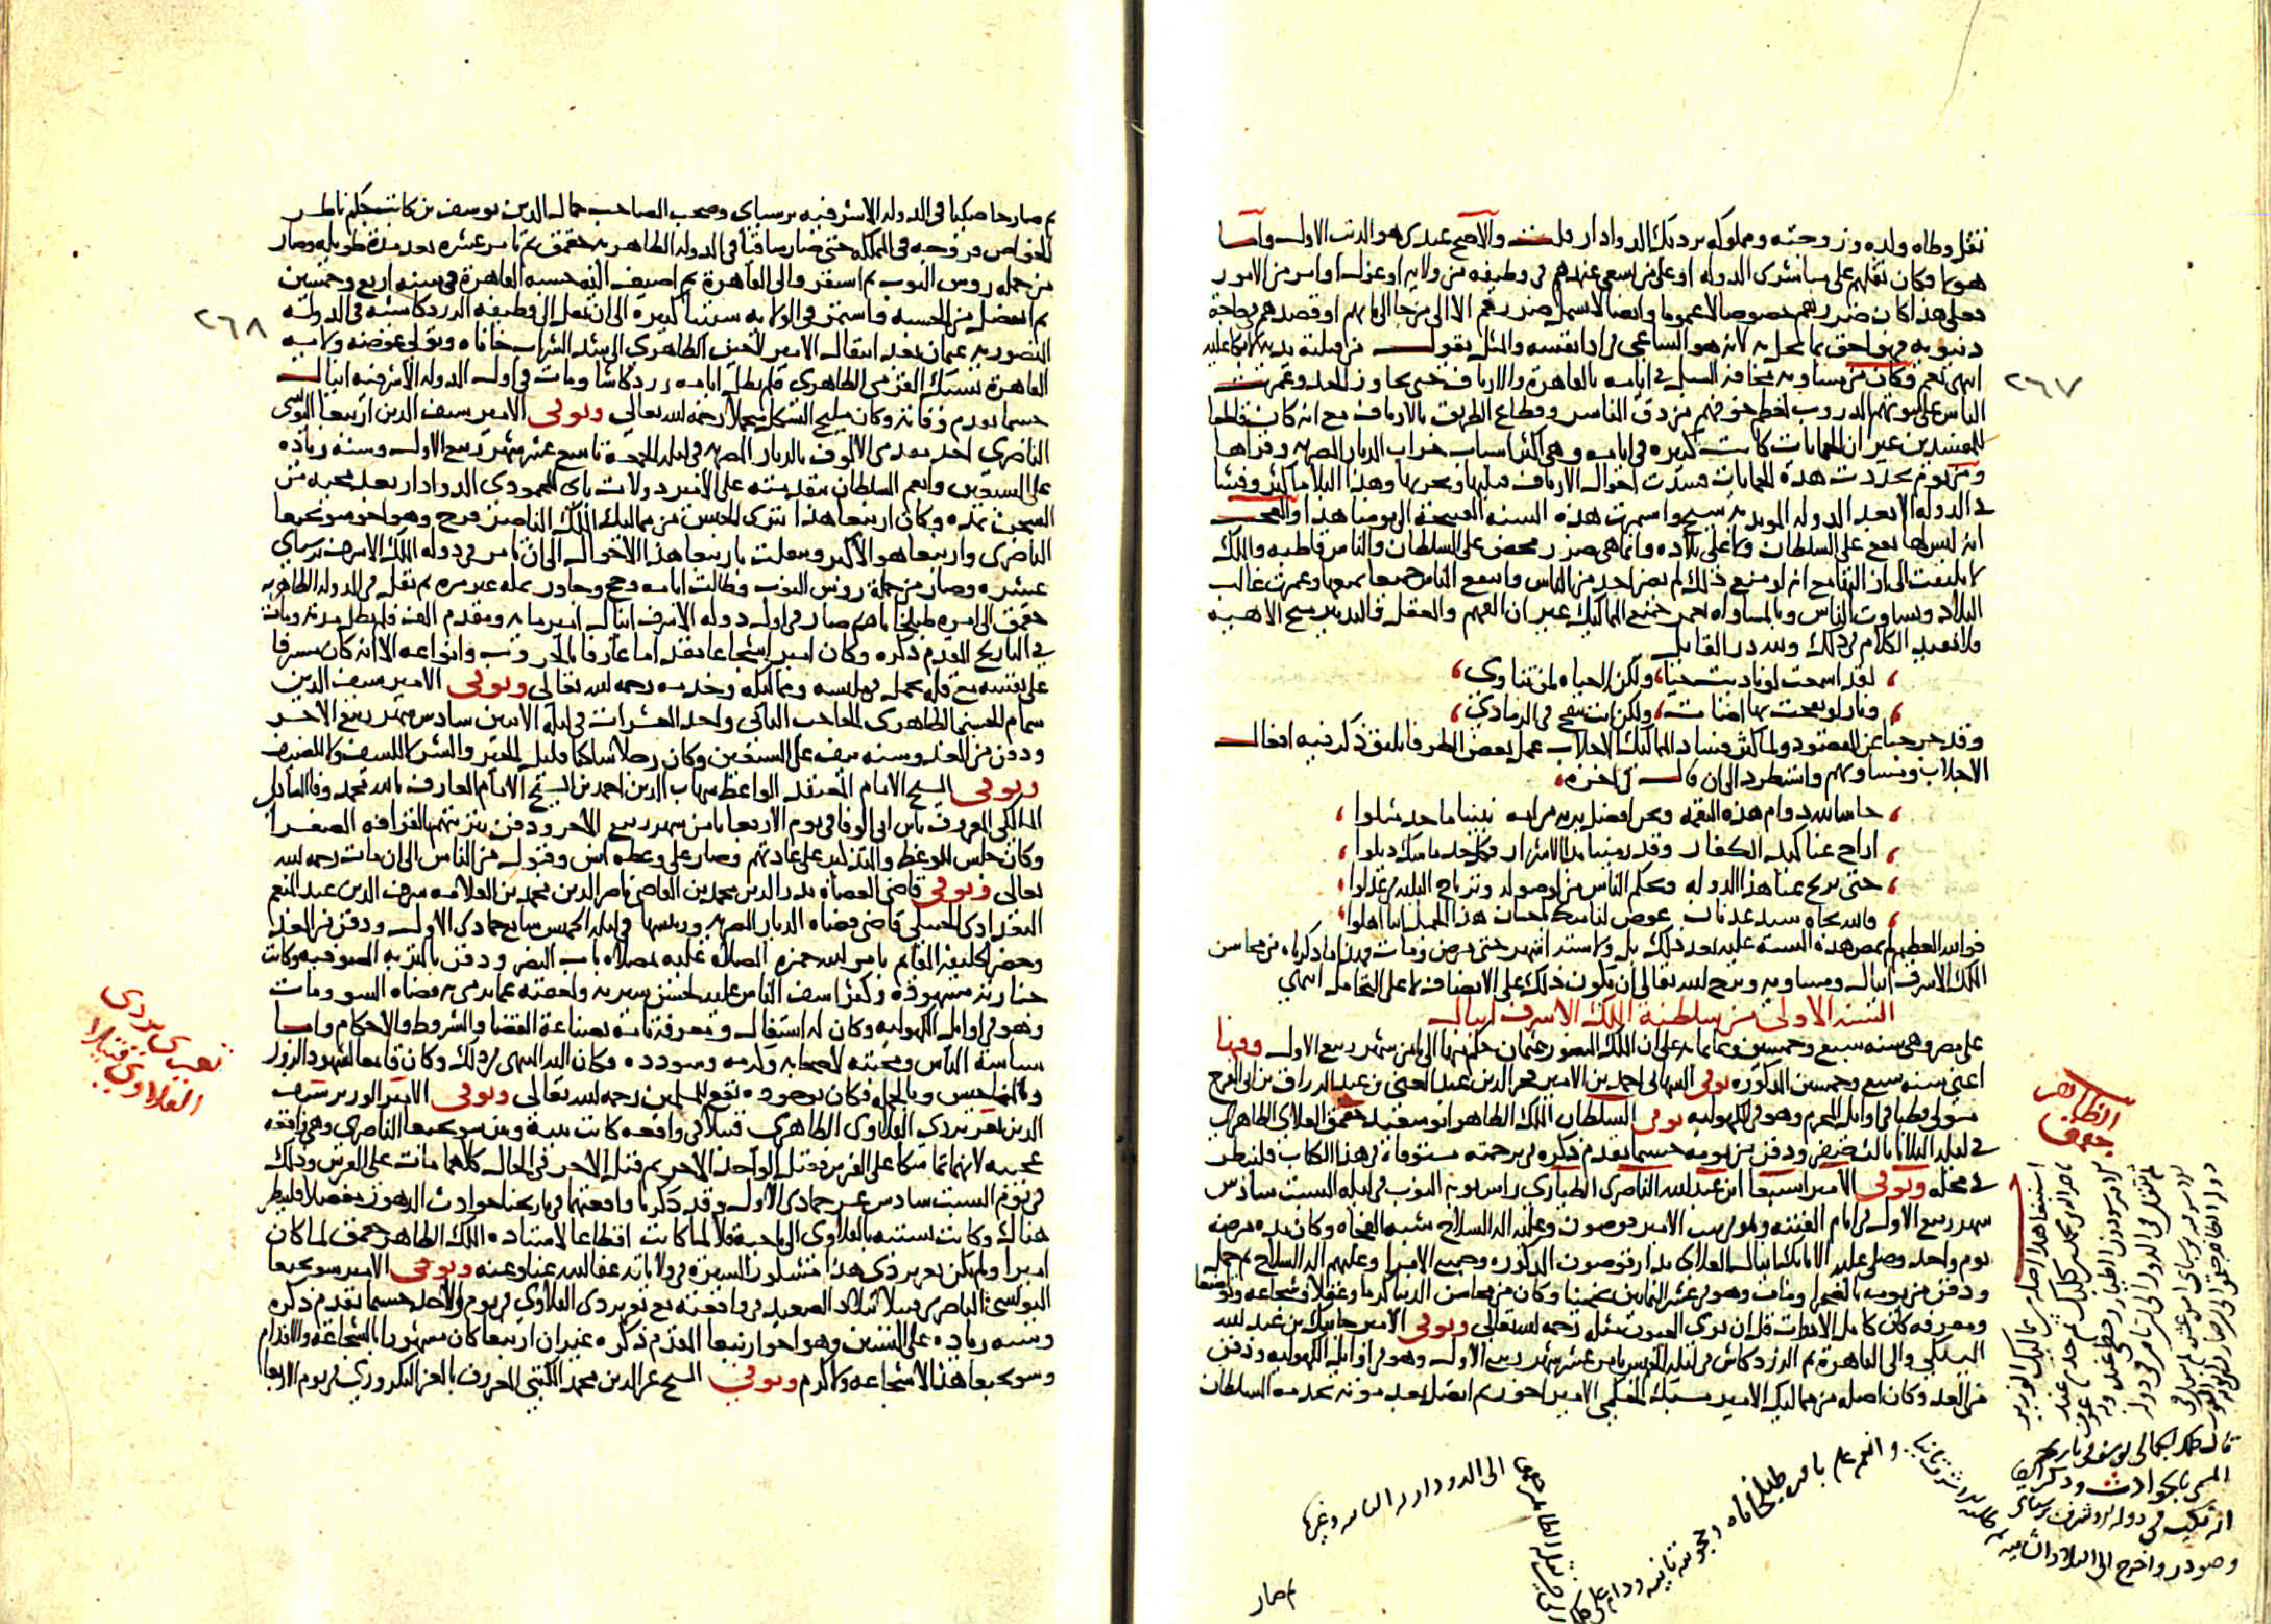 ثقل وطاه ولده وزوجته ومملوكه بردبك الدوادار قلت والاصح عندي هو الذنب الاول وايضا
هولا فكان ثقلهم على مباشري الدولة او على من يسعى عندهم في وظيفة من ولاية او عزل او امر من الامور
فعلى هذا كان ضررهم خصوصا لا عموما وايضا لا يشمل ضررهم الا الى من جا الى بابهم او قصدهم بحاجة
دنيوية فهو احق بما يحل به لانه هو الساعي في اذا نفسه والمثل يقول من قتلته يديه لا بكا عليه
انتهى نعم وكان من مساويه مخافة السبل في ايامه بالقاهرة والارياف حتى تجاوز الحد وعمرت
الناس على بيوتهم الدروب لعظم خوفهم من دق المناسر وقطاع الطريق بالارياف مع انه كان قاطعا
للمفسدين غير ان الحمايات كانت كثيرة في ايامه وهي اكثر اسباب خراب الديار المصرية وقراها
ومن يوم تجددت هذه الحمايات فسدت احوال الارياف قبليها وبحريها وهذا البلا ما كثر وفشا
في الدولة الا بعد الدولة المويدية شيخ واستمرت هذه السنة القبيحة الى يومنا هذا والعجب
انه ليس لها نفع على السلطان ولا على بلاده وانما هي ضرر محض على السلطان والناس قاطبة والملك
لا يلتفت الى ازالتها مع انه لو منع ذلك لم يضر احد من الناس وانتفع الناس جميعا بمنعها وعمرت غالب
البلاد وتساوت الناس وبالمساواه تعمر جميع الممالك غير ان الفهم والعقل والتدبير منح الاهية
فلا نعيد الكلام في ذلك ولله در القايل
لقد اسمعت لو ناديت حيا ولكن لا حياة لمن تنادي
ونار لو نفخت بها اضات ولكن انت تنفخ في الرماد
وقد خرجنا عن المقصود ولما كثر فساد المماليك الاجلاب عمل بعض الظرفا بليق ذكر فيه افعال
الاجلاب ومساويهم واستطرد الى ان قال في اخره
حاشا لله دوام هذه النقمه ونحن افضل برية من امه نبينا ما حد مثلوا
اراح عنا كيد الكفار وقد رمينا بالاشرار فكل حد ما مسك ديلوا
حتى يريح عنا هذا الدوله ويحكم الناس من لو صوله ونرتاح البلد من عدلوا
والله بجاه سيد عدنان عوض لنا منك باحسان هذا الجميل انتا اهلوا
فوالله العظيم لم تمض هذه السنة عليه بعد ذلك بل ولا استدار شهر حتى مرض ومات فهذا ما ذكرناه من محاسن
الملك الاشرف اينال ومساويه ونرجو الله تعالى ان يكون ذلك على الانصاف لا على التحامل انتهى
السنة الاولى من سلطنة الملك الاشرف اينال
على مصر وهي سنة سبع وخمسين وثمانمائة على ان الملك المنصور عثمان حكم فيها الى ثامن شهر ربيع الاول وفيها
اعني سنة سبع وخمسين المذكورة توفي الشهابي احمد بن الامير فخر الدين عبد الغني بن عبد الرزاق بن ابي الفرج
متولي قطيا في اوايل المحرم وهو في الكهولية توفي السلطان الملك الظاهر ابو سعيد جقمق العلاي الظاهري
في ليلة الثلاثا ثالث صفر ودفن من يومه حسبما تقدم ذكره في ترجمته مستوفاة في هذا الكتاب فلينظر
في محله وتوفي الامير اسنبغا ابن عبد الله الناصري الطياري راس نوبة النوب في ليلة السبت سادس
شهر ربيع الاول في ايام الفتنة وهو في بيت الامير قوصون وعليه الة السلاح شبه الفجاة وكان بدء مرضه
يوم واحد وصلى عليه الاتابك اينال العلاي بدار قوصون المذكورة وجميع الامرا وعليهم الة السلاح ثم حمل
ودفن من يومه بالصحرا ومات وهو في عشر الثمانين تخمينا وكان من محاسن الدنيا كرما وعقلا وشجاعة وتواضعا
ومعرفة كان كامل الادوات قل ان ترى العيون مثله رحمه الله تعالى وتوفي الامير جانبك بن عبد الله
اليشبكي والي القاهرة ثم الزردكاش في ليلة الخميس ثامن عشر شهر ربيع الاول وهو في اوايل الكهولية ودفن
من الغد وكان اصله من مماليك الامير يشبك الجكمي الامير اخور ثم اتصل بعد موته بخدمة السلطان
٢٦٧
الظاهر
جقمق
اسنبغا هذا اصله من مماليك الوزير
ناصر الدين محمد بن كلبك ثم خدم عند
الامير سودون الطيار
ثم تنقل في الدول الى ان تامر في دولة
الاشرف برسباي امير عشرة
دولة الظاهر جقمق الى ان صار راس نوبة النوب
قال الجمالي يوسف في تاريخه
المسمى بالحوادث وذكر ايضا
انه نكب في دولة الاشرف برسباي
وصودر واخرج الى البلاد الشامية
وانعم عليه بامرة طبلخاناه
الى الدوادارية الثانية وغيرها
ثم صار
ثم صار خاصكيا في الدولة الاشرفية برسباي وصحب الصاحب جمال الدين يوسف بن كاتب جكم ناظر
الخواص فروجه في المملكة حتى صار ساقيا في الدولة الظاهرية جقمق ثم تامر عشرة بعد مدة طويلة وصار
من جملة روس النوب ثم استقر والي القاهرة ثم اضيف اليه حسبة القاهرة في سنة اربع وخمسين
ثم انفصل من الحسبة واستمر في الولاية سنينا كثيرة الى ان نقل الى وظيفة الزردكاشية في الدولة
المنصورية عثمان بعد انتقال الامير لاجين الظاهري الى شد الشراب خاناه وتولى عوضه ولاية
القاهرة يشبك القرمي الظاهري فلم تطل ايامه زردكاشا ومات في اول الدولة الاشرفية اينال
حسبما تقدم وفاته وكان مليح الشكل متجملا رحمه الله تعالى وتوفي الامير سيف الدين ارنبغا اليونسي
الناصري احد مقدمي الالوف بالديار المصرية في ليلة الجمعة تاسع عشر شهر ربيع الاول وسنه زيادة
على السبعين وانعم السلطان بتقدمته على الامير دولات باي المحمودي الدوادار بعد مجيه من
السجن بمدة وكان ارنبغا هذا تتري الجنس من مماليك الملك الناصر فرج وهو اخو سونجبغا
الناصري وارنبغا هو الاكبر وتنقلت بارنبغا هذا الاحوال الى ان تامر في دولة الملك الاشرف برسباي
عشرة وصار من جملة روس النوب وطالت ايامه وحج وجاور بمكة غير مرة ثم نقل في الدولة الظاهرية
جقمق الى امرة طبلخاناه ثم صار في اول دولة الاشرف اينال امير مائة ومقدم الف فلم تطل مدته ومات
في التاريخ المقدم ذكره وكان اميرا شجاعا مقداما عارفا بالحروب وانواعه الا انه كان مسرفا
على نفسه مع قلة تجمل في ملبسه ومماليكه وخدمه رحمه الله تعالى وتوفي الامير سيف الدين
سمام الحسني الظاهري الحاجب الثاني واحد العشرات في ليلة الاثنين سادس شهر ربيع الاخر
ودفن من الغد وسنه نيف على السبعين وكان رجلا ساكنا قليل الخير والشر لا للسيف ولا للضيف
وتوفي الشيخ الامام المعتقد الواعظ شهاب الدين احمد بن الشيخ الامام العارف بالله محمد وفا الشاذلي
المالكي المعروف بابن ابي الوفا في يوم الاربعا ثامن شهر ربيع الاخر ودفن بتربتهم بالقرافة الصغرى
وكان جلس للوعظ والتذكير على عادتهم وصار على وعظه انس وقبول من الناس الى ان مات رحمه الله
تعالى وتوفي قاضي القضاة بدر الدين محمد بن القاضي ناصر الدين محمد بن العلامة شرف الدين عبد المنعم
البغدادي الحنبلي قاضي قضاة الديار المصرية وريسها في ليلة الخميس سابع جمادى الاولى ودفن من الغد
وحضر الخليفة القايم بامر الله حمزة الصلاة عليه بمصلاة باب النصر ودفن بالتربة الصوفية وكانت
جنازته مشهودة وكثر اسف الناس عليه لحسن سيرته ولعفته عما يرمى به قضاة السوء ومات
وهو في اوايل الكهولية وكان له اشتغال ومعرفة تامة بصناعة القضا والشروط والاحكام وايضا
سياسة الناس ومحبته لاصحابه وكرمه وسودده وكان اليه المنتهى في ذلك وكان قامعا لشهود الزور
والمناحيس وبالجملة فكان بوجوده نفع للمسلمين رحمه الله تعالى وتوفي الامير الوزير شرف
الدين تغري بردي القلاوي الظاهري قتيلا في واقعة كانت بينه وبين سونجبغا الناصري وهي واقعة
عجيبة لانهما تماسكا على الفرس فقتل الواحد الاخر ثم قتل الاخر في الحال كلاهما مات على الفرش وذلك
في يوم السبت سادس عشر جمادى الاول وقد ذكرنا واقعتهما في تاريخنا حوادث الدهور مفصلا فلينظر
هناك وكانت نسبته بالقلاوي الى ناحية قلا لما كانت اقطاعا لاستاده الملك الظاهر جقمق لما كان
اميرا ولم يكن تغري بردي هذا مشكور السيرة في ولاياته عفا الله عنا وعنه وتوفي الامير سونجبغا
اليونسي الناصري قتيلا ببلاد الصعيد في واقعته مع تغري بردي القلاوي في يوم واحد حسبما تقدم ذكره
وسنه زيادة على الستين وهو اخو ارنبغا المقدم ذكره غير ان ارنبغا كان مشهورا بالشجاعة والاقدام
وسونجبغا هذا لا شجاعة ولا كرم وتوفي الشيخ عز الدين محمد الكتبي المعروف بالعز التكروري في يوم الاربعا
٢٦٨
تغري بردي
القلاوي قتيلا